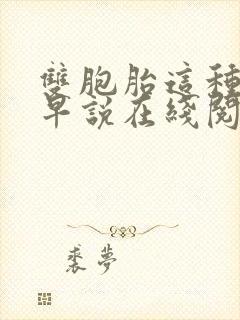 雙胞胎這種
早說在綫閱
裘夢